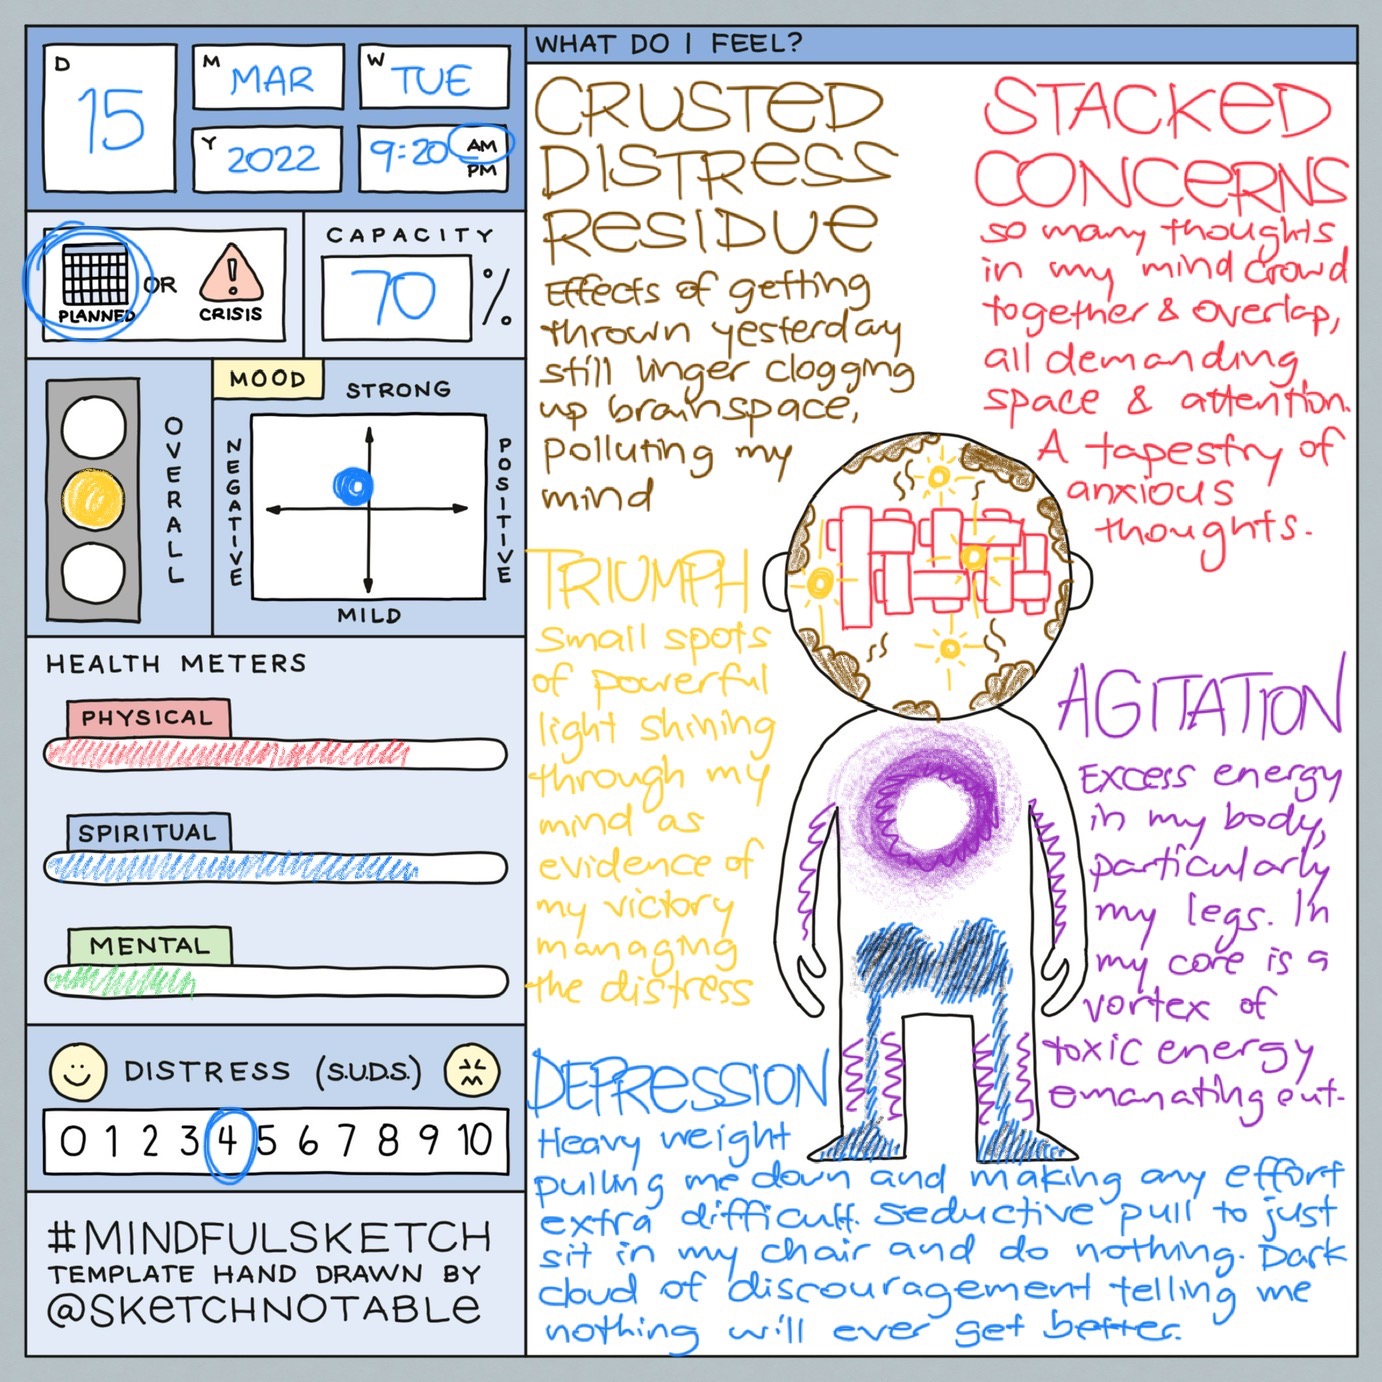 D
15
M
MAR
W
TUE
Y
2022
9:20 AM
PM
PLANNED
OR
CRISIS
CAPACITY
70 %
OVERALL
MOOD
STRONG
NEGATIVE
POSITIVE
MILD
HEALTH METERS
PHYSICAL
SPIRITUAL
MENTAL
DISTRESS (S.U.D.S.)
0 1 2 3 4 5 6 7 8 9 10
#MINDFULSKETCH
TEMPLATE HAND DRAWN BY
@SKETCHNOTABLE
WHAT DO I FEEL?
CRUSTED
DISTRESS
RESIDUE
Effects of getting
thrown yesterday
still linger clogging
up brainspace,
Polluting my
mind
STACKED
CONCERNS
so many thoughts
in my mind crowd
together & overlap,
all demanding
space & attention.
A tapestry of
anxious
thoughts.
TRIUMPH
Small spots
of powerful
light shining
through my
mind as
evidence of
my victory
managing
the distress
AGITATION
Excess energy
in my body,
particularly
my legs. In
my core is a
vortex of
toxic energy
emanating out.
DEPRESSION
Heavy weight
pulling me down and making any effort
extra difficult. Seductive pull to just
sit in my chair and do nothing. Dark
cloud of discouragement telling me
nothing will ever get better.